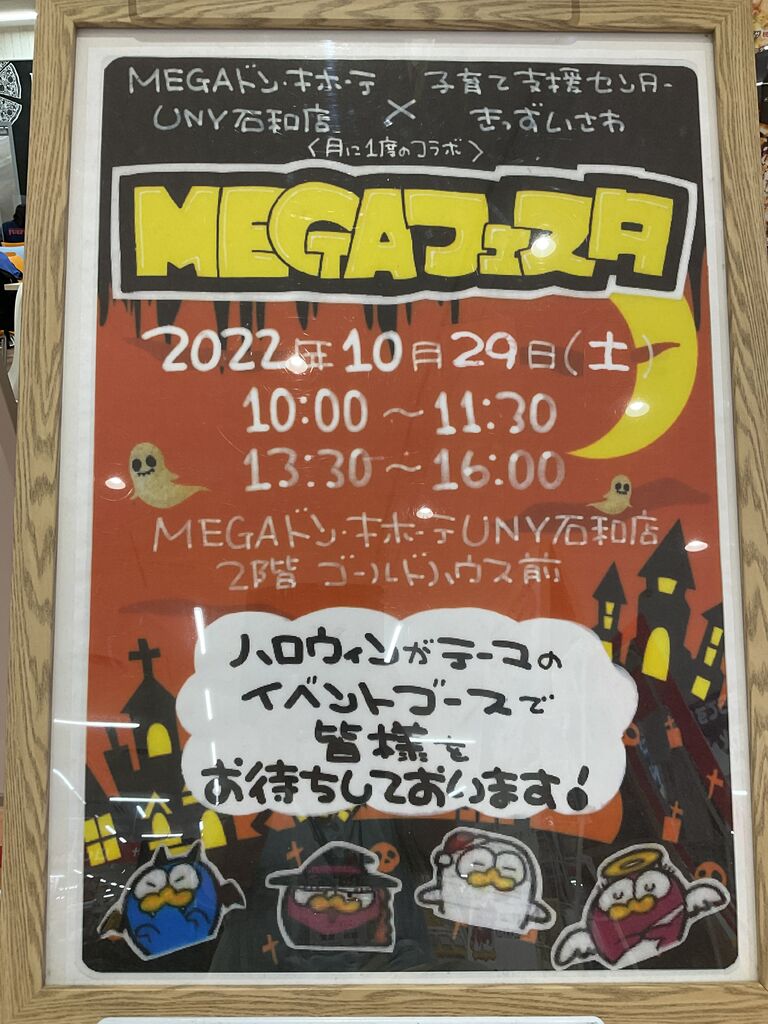 MEGAドン・キホーテ × 子育て支援センター
UNY石和店 きっずいさわ
＜月に1度のコラボ＞
MEGAフェスタ
2022年10月29日(土)
10:00～11:30
13:30～16:00
MEGAドン・キホーテUNY石和店
2階 ゴールドハウス前
ハロウィンがテーマの
イベントブースで
皆様を
お待ちしております！